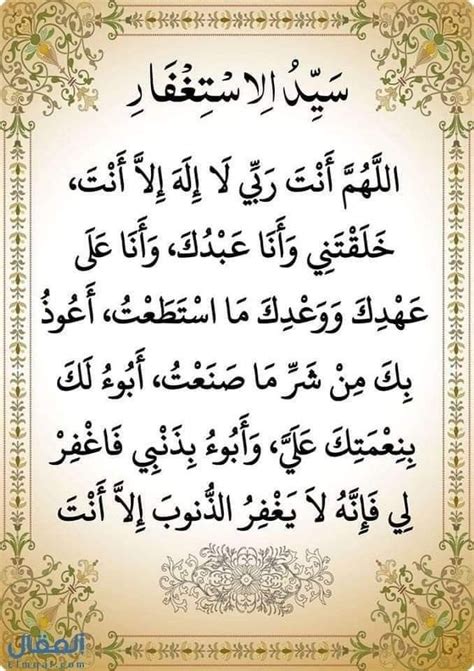 سَيِّدُ الِاسْتِغْفَارِ
اللَّهُمَّ أَنْتَ رَبِّي لَا إِلَهَ إِلاَّ أَنْتَ،
خَلَقْتَنِي وَأَنَا عَبْدُكَ، وَأَنَا عَلَى
عَهْدِكَ وَوَعْدِكَ مَا اسْتَطَعْتُ، أَعُوذُ
بِكَ مِنْ شَرِّ مَا صَنَعْتُ، أَبُوءُ لَكَ
بِنِعْمَتِكَ عَلَيَّ، وَأَبُوءُ بِذَنْبِي فَاغْفِرْ
لِي فَإِنَّهُ لاَ يَغْفِرُ الذُّنوبَ إِلاَّ أَنْتَ
المقال
Elmqal.com